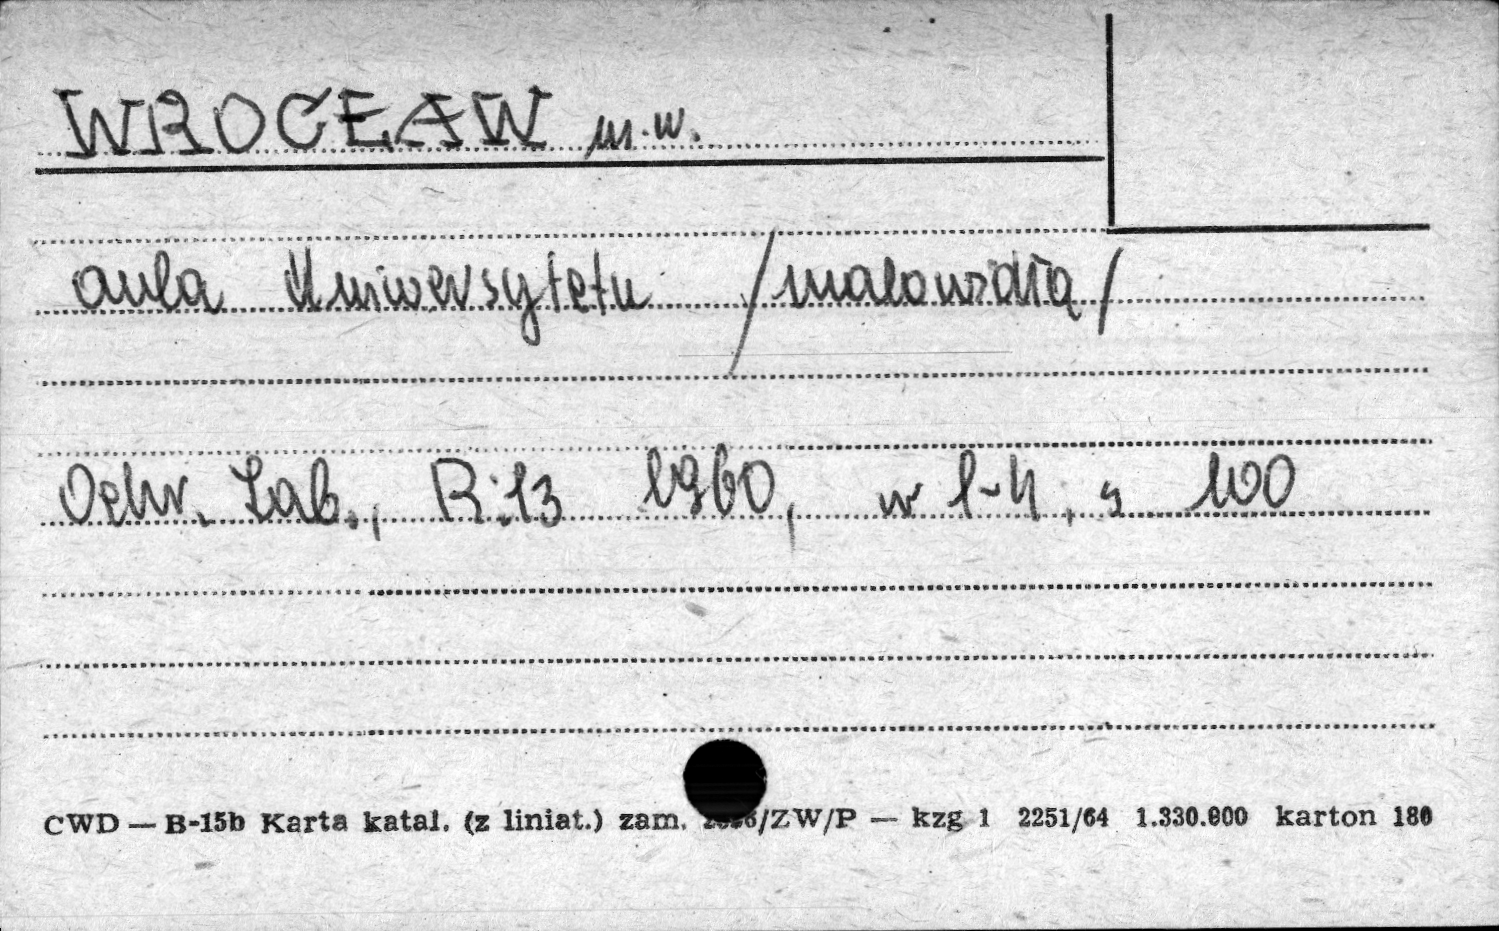 WROCŁAW m.w.
aula Uniwersytetu /malowidła/
Ochr. Zab., R:13 1960, nr 1-4, s 100
CWD — B-15b Karta katal. (z liniat.) zam. /ZW/P — kzg 1 2251/64 1.330.000 karton 180